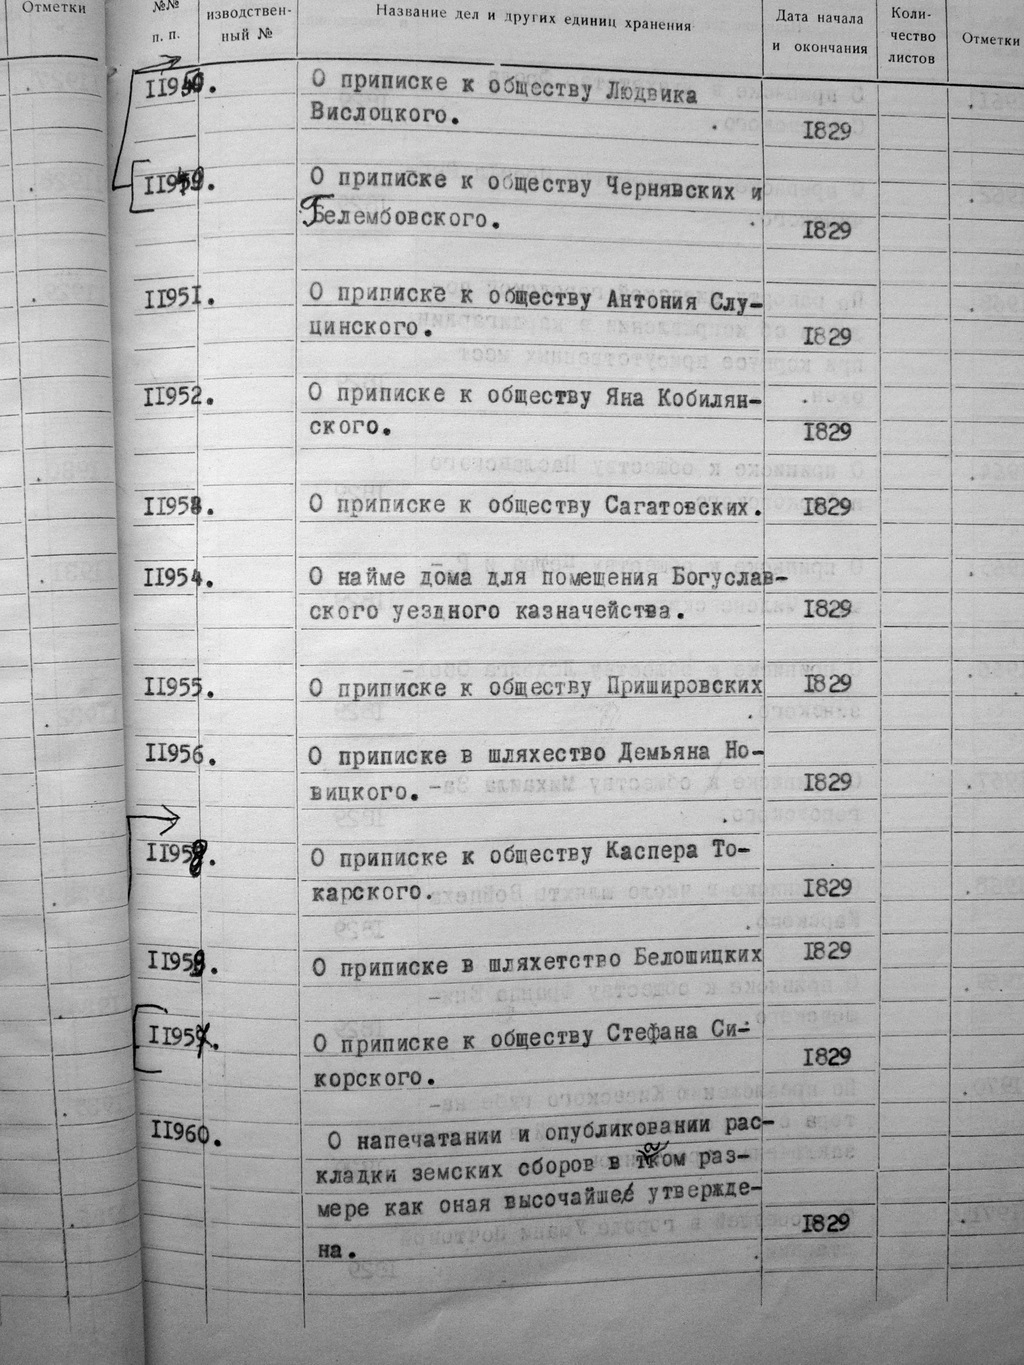 Отметки
№№
п. п.
изводствен-
ный №
Название дел и других единиц хранения
Дата начала
и окончания
Коли-
чество
листов
Отметки
II950.
О приписке к обществу Людвика
Вислоцкого.
1829
О приписке к обществу Чернявских и
Гелембовского.
1829
II951.
О приписке к обществу Антония Слу-
цинского.
1829
II952.
О приписке к обществу Яна Кобилян-
ского.
1829
II953.
О приписке к обществу Сагатовских.
1829
II954.
О найме дома для помещения Богуслав-
ского уездного казначейства.
1829
II955.
О приписке к обществу Пришировских
1829
II956.
О приписке в шляхество Демьяна Но-
вицкого.
1829
О приписке к обществу Каспера То-
карского.
1829
О приписке в шляхетство Белошицких
1829
О приписке к обществу Стефана Си-
корского.
1829
II960.
О напечатании и опубликовании рас-
кладки земских сборов в таком раз-
мере как оная высочайше утвержде-
на.
1829